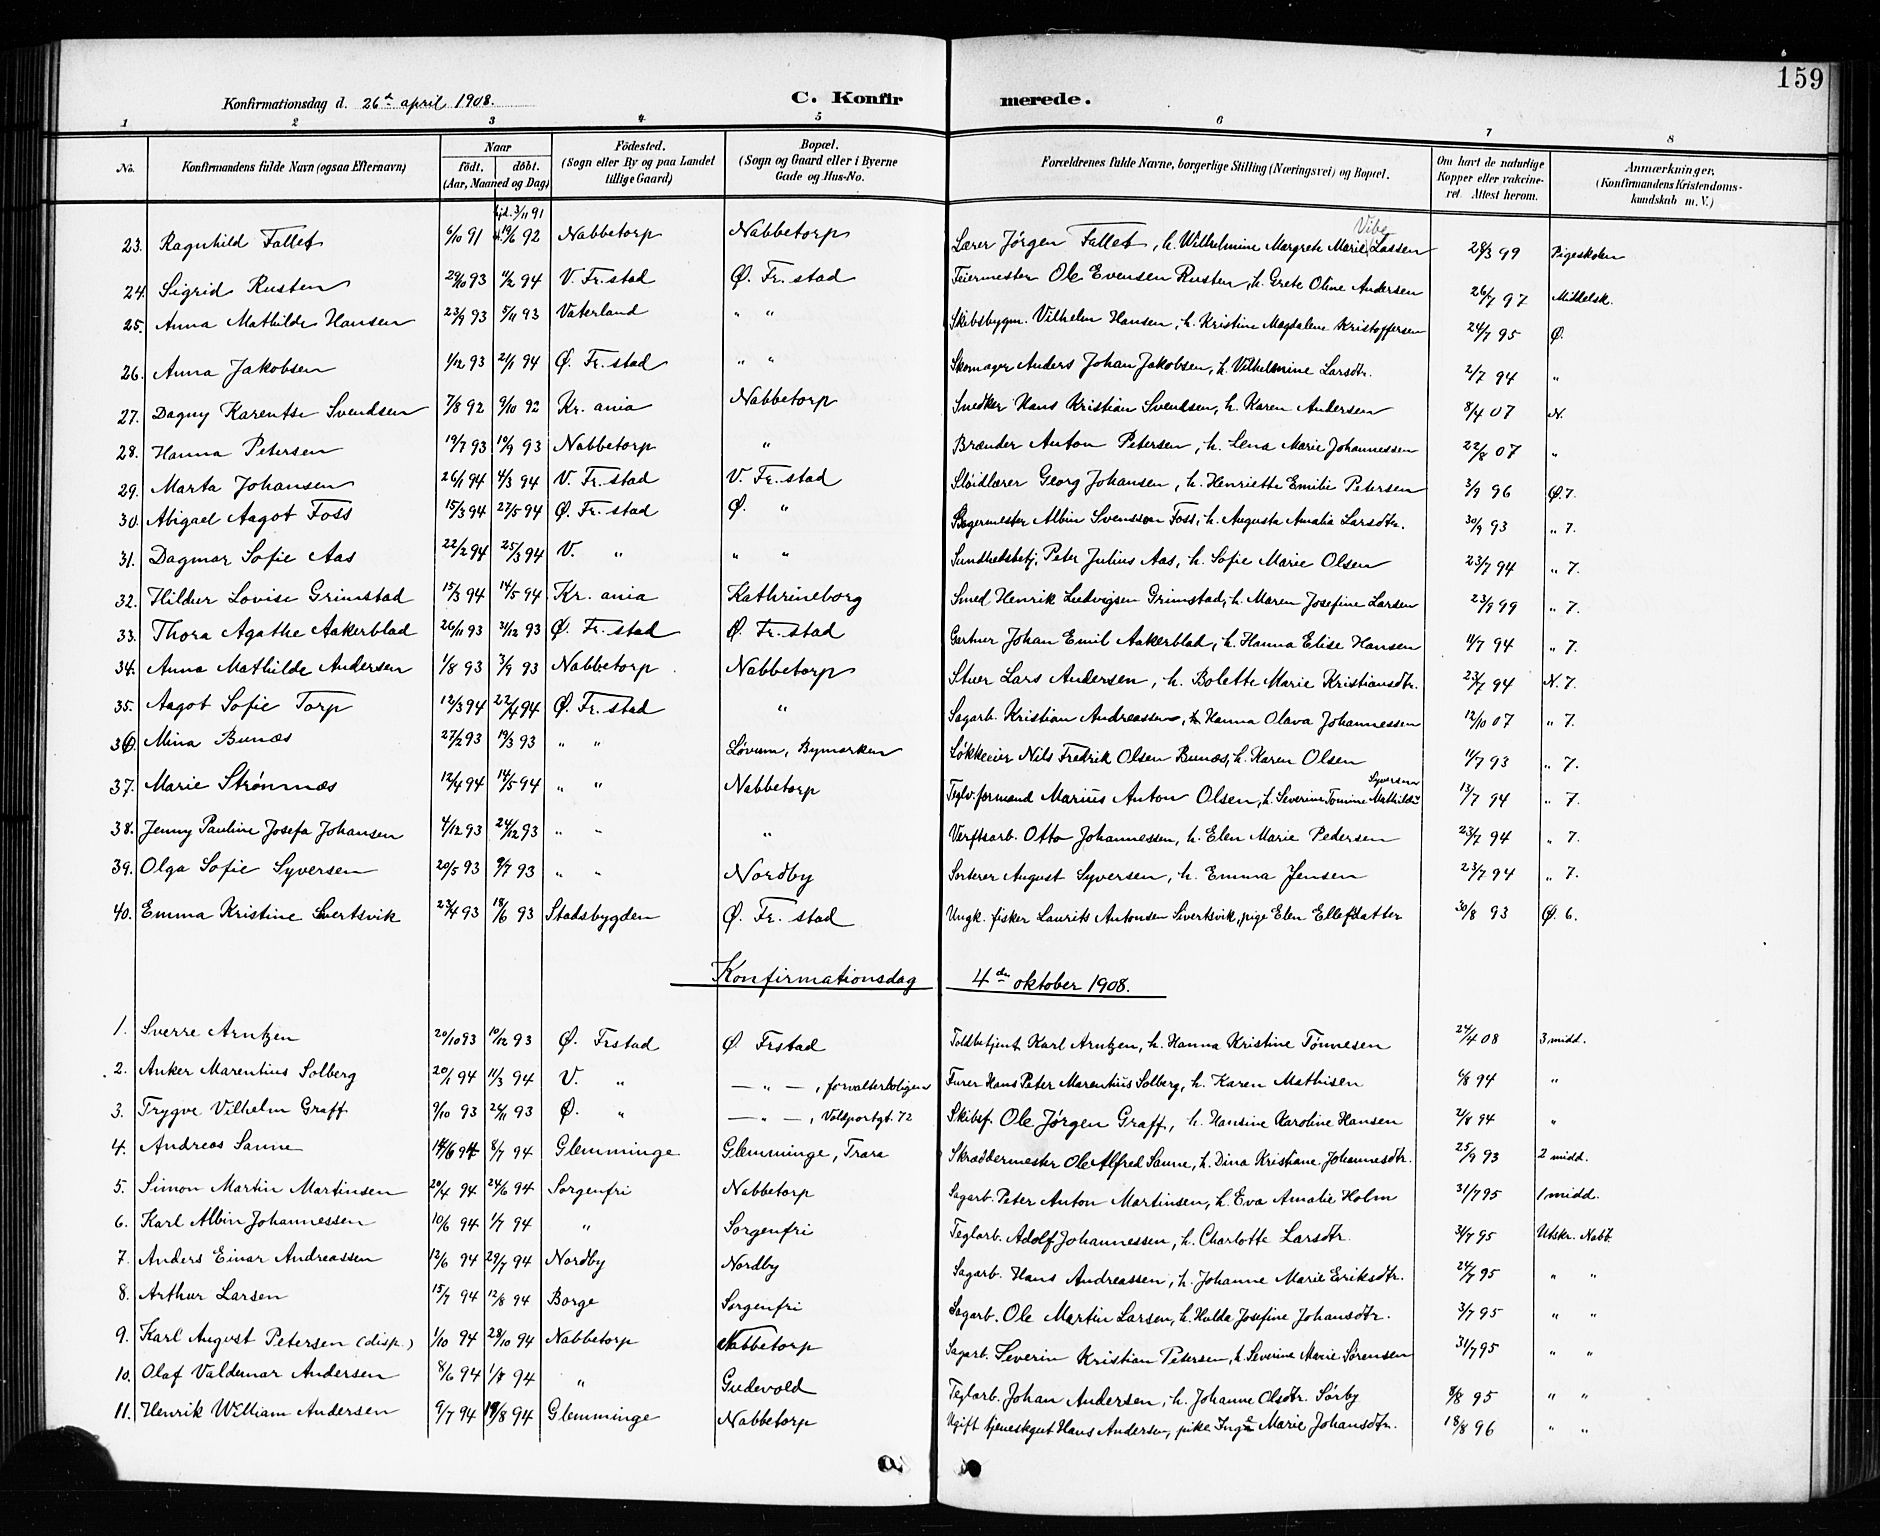 159
Konfirmationsdag d. 26de april 1908. C. Konfirmerede.
1 2 3 4 5 6 7 8
No. Konfirmandens fulde Navn (ogsaa Efternavn) Naar født. døbt. (Aar, Maaned og Dag) Fødested. (Sogn eller By og paa Landet tillige Gaard) Bopæl. (Sogn og Gaard eller i Byerne Gade og Hus-No. Forældrenes fulde Navne, borgerlige Stilling (Næringsvei) og Bopæl. Om havt de naturlige Kopper eller vakcineret. Attest herom. Anmærkninger. (Konfirmandens Kristendomskundskab m. V.)
23. Ragnhild Fallet 6/10 91 hjd. 3/11 91 19/6 92 Nabbetorp Nabbetorp Lærer Jörgen Fallet, h. Wilhelmine Margrete Marie Vibe Lassen 28/3 99 Pigeskolen
24. Sigrid Rusten 29/10 93 11/2 94 V. Fr.stad Ø. Fr.stad Feiermester Ole Evensen Rusten, h. Grete Oline Andersen 26/7 97 Middelsk.
25. Anna Mathilde Hansen 23/9 93 5/11 93 Vaterland " " Skibsbygm. Vilhelm Hansen, h. Kristine Magdalene Kristoffersen 24/7 95 Ø.
26. Anna Jakobsen 1/12 93 21/1 94 Ø. Fr.stad " " Skomager Anders Johan Jakobsen, h. Vilhelmine Larsdtr. 2/7 94 "
27. Dagny Karentse Svendsen 7/8 92 9/10 92 Kr.ania Nabbetorp Snedker Hans Kristian Svendsen, h. Karen Andersen 8/4 07 N.
28. Hanna Petersen 19/7 93 10/9 93 Nabbetorp " Brænder Anton Petersen, h. Lena Marie Johannessen 22/8 07 "
29. Marta Johansen 26/1 94 4/3 94 V. Fr.stad V. Fr.stad Sløidlærer Georg Johansen, h. Henriette Emilie Petersen 3/9 96 Ø. 7.
30. Abigael Aagot Foss 15/3 94 27/5 94 Ø. Fr.stad Ø. " Bagermester Albin Svensson Foss, h. Augusta Amalia Larsdtr. 30/9 93 " 7.
31. Dagmar Sofie Aas 22/2 94 25/3 94 V. " " " Sundhedsbetj. Peter Julius Aas, h. Sofie Marie Olsen 23/7 94 " 7.
32. Hildur Lovise Grimstad 15/3 94 14/5 94 Kr.ania Kathrineborg Smed Henrik Ludvigsen Grimstad, h. Maren Josefine Larsen 23/9 99 " 7.
33. Thora Agathe Aakerblad 26/11 93 31/12 93 Ø. Fr.stad Ø. Fr.stad Gartner Johan Emil Aakerblad, h. Hanna Elise Hansen 11/7 94 " 7.
34. Anna Mathilde Andersen 1/8 93 3/9 93 Nabbetorp Nabbetorp Stuer Lars Andersen, h. Bolette Marie Kristiansdtr. 23/7 94 N. 7.
35. Aagot Sofie Torp 12/3 94 22/4 94 Ø. Fr.stad " Sagarb. Kristian Andreassen, h. Hanna Olava Johannessen 12/10 07 " 7.
36. Mina Bunæs 27/2 93 19/3 93 " " Løvum, Bymarken Løkkeeier Nils Fredrik Olsen Bunæs, h. Karen Olsen 11/7 93 " 7.
37. Marie Strømnæs 12/4 94 14/5 94 " " Nabbetorp Teglv.formand Marius Anton Olsen, h. Severine Tomine Mathilde Syversen 13/7 94 " 7.
38. Jenny Pauline Josefa Johansen 4/12 93 24/12 93 " " " Verftsarb. Otto Johannessen, h. Elen Marie Pedersen 23/7 94 " 7.
39. Olga Sofie Syversen 20/5 93 9/7 93 " " Nordby Sorterer August Syversen, h. Emma Jensen 23/7 94 " 7.
40. Emma Kristine Sivertsvik 23/4 93 18/6 93 Stadsbygden Ø. Fr.stad Ungk. fisker Laurits Antonsen Sivertsvik, pige Elen Ellefsdatter 30/8 93 Ø. 6.
Konfirmationsdag 4den oktober 1908.
1. Sverre Arntzen 20/10 93 10/12 93 Ø. Frstad Ø. Frstad Toldbetjent Karl Arntzen, h. Hanna Kristine Tönnesen 24/4 08 3 midd.
2. Anker Marentius Solberg 20/1 94 11/3 94 V. " — " —, forvalterboligen Furer Hans Peter Marentius Solberg, h. Karen Mathisen 6/8 94 "
3. Trygve Vilhelm Graff 9/10 93 26/11 93 Ø. " — " —, Voldportgt. 72 Skibsf. Ole Jörgen Graff, h. Hansine Karoline Hansen 2/8 94 "
4. Andreas Sanne 14/6 94 8/7 94 Glemminge Glemminge, Trara Skræddermester Ole Alfred Sanne, h. Dina Kristiane Johannesdtr. 25/9 93 2 midd.
5. Simon Martin Martinsen 20/4 94 24/6 94 Sorgenfri Nabbetorp Sagarb. Peter Anton Martinsen, h. Eva Amalie Holm 31/7 95 1 midd.
6. Karl Albin Johannessen 10/6 94 1/7 94 " Sorgenfri Teglarb. Adolf Johannessen, h. Charlotte Larsdtr. 31/7 95 Utskr. Nabb.
7. Anders Einar Andreassen 12/6 94 29/7 94 Nordby Nordby Sagarb. Hans Andreassen, h. Johanne Marie Eriksdtr. 24/7 95 " "
8. Arthur Larsen 15/7 94 12/8 94 Borge Sorgenfri Sagarb. Ole Martin Larsen, h. Hulda Josefine Johansdtr. 3/7 95 " "
9. Karl August Petersen (disp.) 1/10 94 28/10 94 Nabbetorp Nabbetorp Sagarb. Severin Kristian Petersen, h. Severine Marie Sörensen 31/7 95 " "
10. Olaf Valdemar Andersen 8/6 94 1/8 94 " Gudevold Teglarb. Johan Andersen, h. Johanne Olsdtr. Sörby 8/8 95 " "
11. Henrik William Andersen 9/7 94 19/8 94 Glemminge Nabbetorp Ugift tjenestegut Hans Andersen, pike Inga Marie Johansdtr. 18/8 96 " "